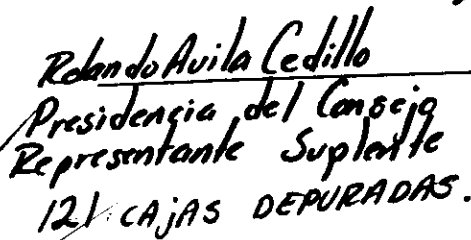 Rolando Avila Cedillo
Presidencia del Consejo
Representante Suplente
121 CAjAS DEPURADAS.